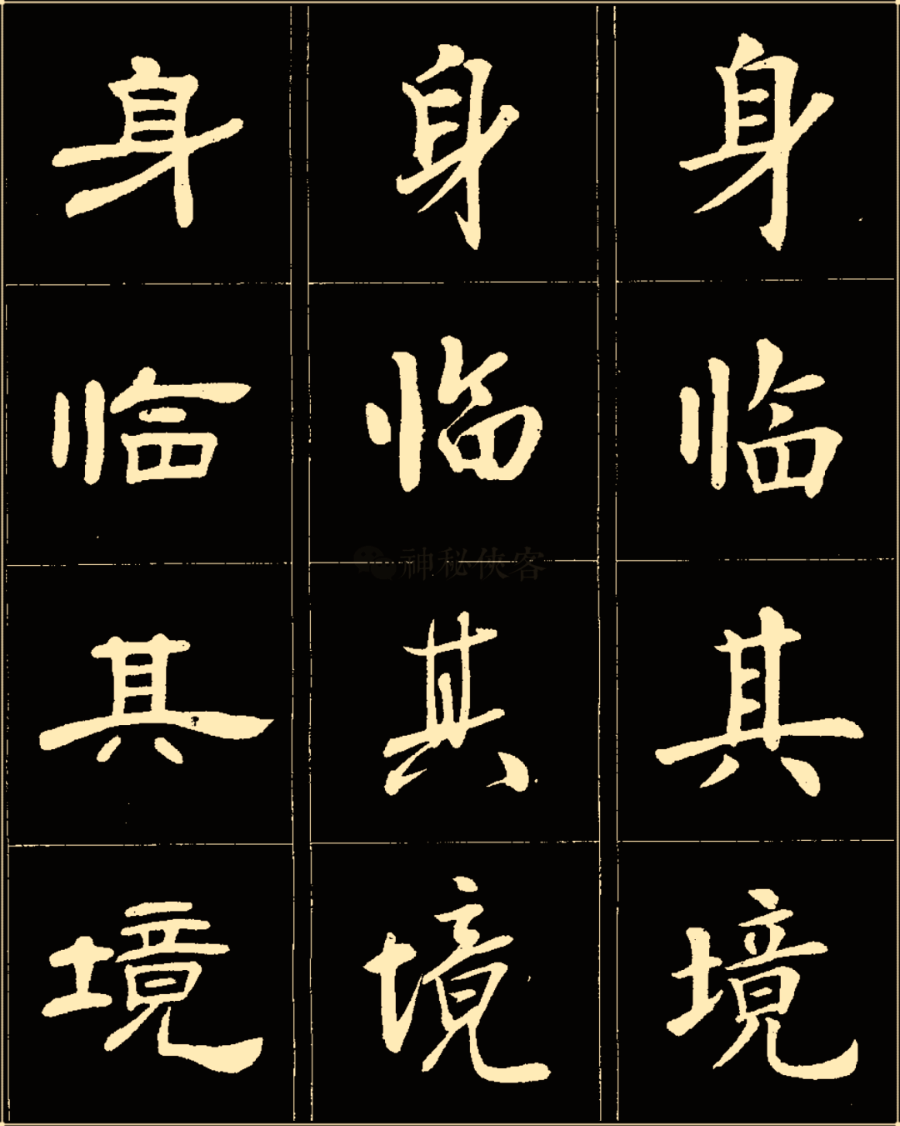 身 身 身
临 临 临
神秘侠客
其 其 其
境 境 境